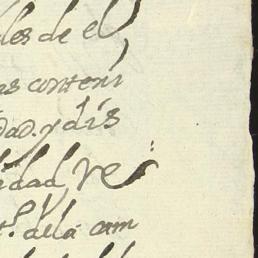 les de el
as conteni
dad. y dis
edad, re
t.º dela cam